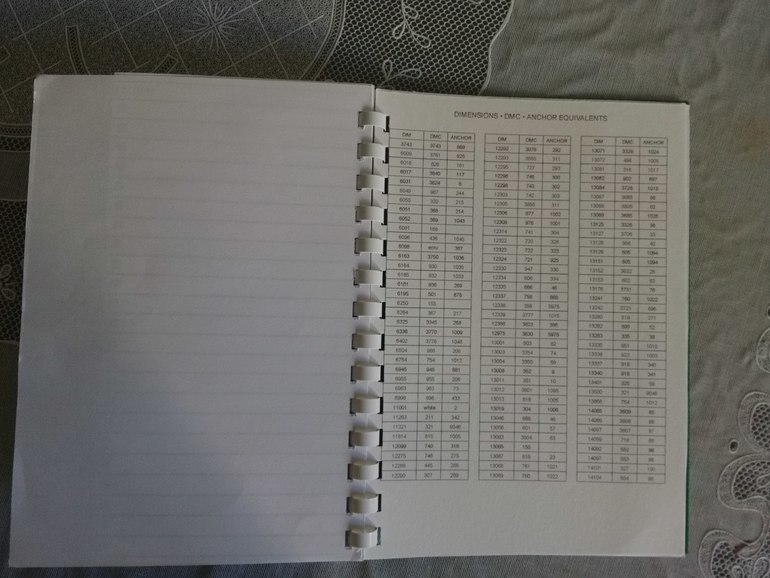 DIMENSIONS • DMC • ANCHOR EQUIVALENTS
DIM DMC ANCHOR
3743 3743 869
6009 3761 928
6018 826 161
6017 3840 117
6031 3824 8
6049 987 244
6050 320 215
6051 368 214
6052 369 1043
6081 159
6096 436 1045
6098 ecru 387
6163 3750 1036
6164 930 1035
6165 932 1033
6181 936 269
6195 501 878
6250 155
6264 367 217
6325 3345 268
6336 3770 1009
6402 3776 1048
6504 986 246
6754 754 1012
6945 945 881
6955 955 206
6963 963 73
6996 996 433
11001 white 2
11263 211 342
11321 321 9046
11814 815 1005
12099 740 316
12275 746 275
12288 445 288
12290 307 289
DIM DMC ANCHOR
12292 3078 292
12293 3855 311
12295 727 293
12296 745 300
12298 743 302
12303 742 303
12305 3855 311
12306 977 1002
12309 976 1001
12314 741 304
12322 720 326
12323 722 323
12324 721 925
12330 947 330
12334 606 334
12335 666 46
12337 758 868
12338 356 5975
12339 3777 1015
12356 3823 386
12975 3830 5975
13001 603 62
13003 3354 74
13004 3350 59
13008 352 9
13011 351 10
13012 3801 1098
13013 816 1005
13019 304 1006
13046 666 46
13056 601 57
13063 3804 63
13065 150
13067 818 23
13068 761 1021
13069 760 1022
DIM DMC ANCHOR
13071 3328 1024
13072 498 1005
13081 316 1017
13082 902 897
13084 3726 1018
13087 3685 68
13088 3805 62
13089 3685 1028
13125 3326 36
13127 3706 33
13128 956 40
13128 605 1094
13151 605 1094
13152 3832 28
13153 602 63
13176 3731 76
13241 760 1022
13242 3721 896
13280 819 271
13282 899 52
13283 335 38
13335 961 1010
13336 922 1003
13337 920 340
13340 918 341
13401 326 59
13500 321 9046
13868 754 1012
14065 3609 85
14066 3608 86
14097 3607 87
14089 718 88
14092 552 99
14097 553 98
14101 327 100
14104 554 96